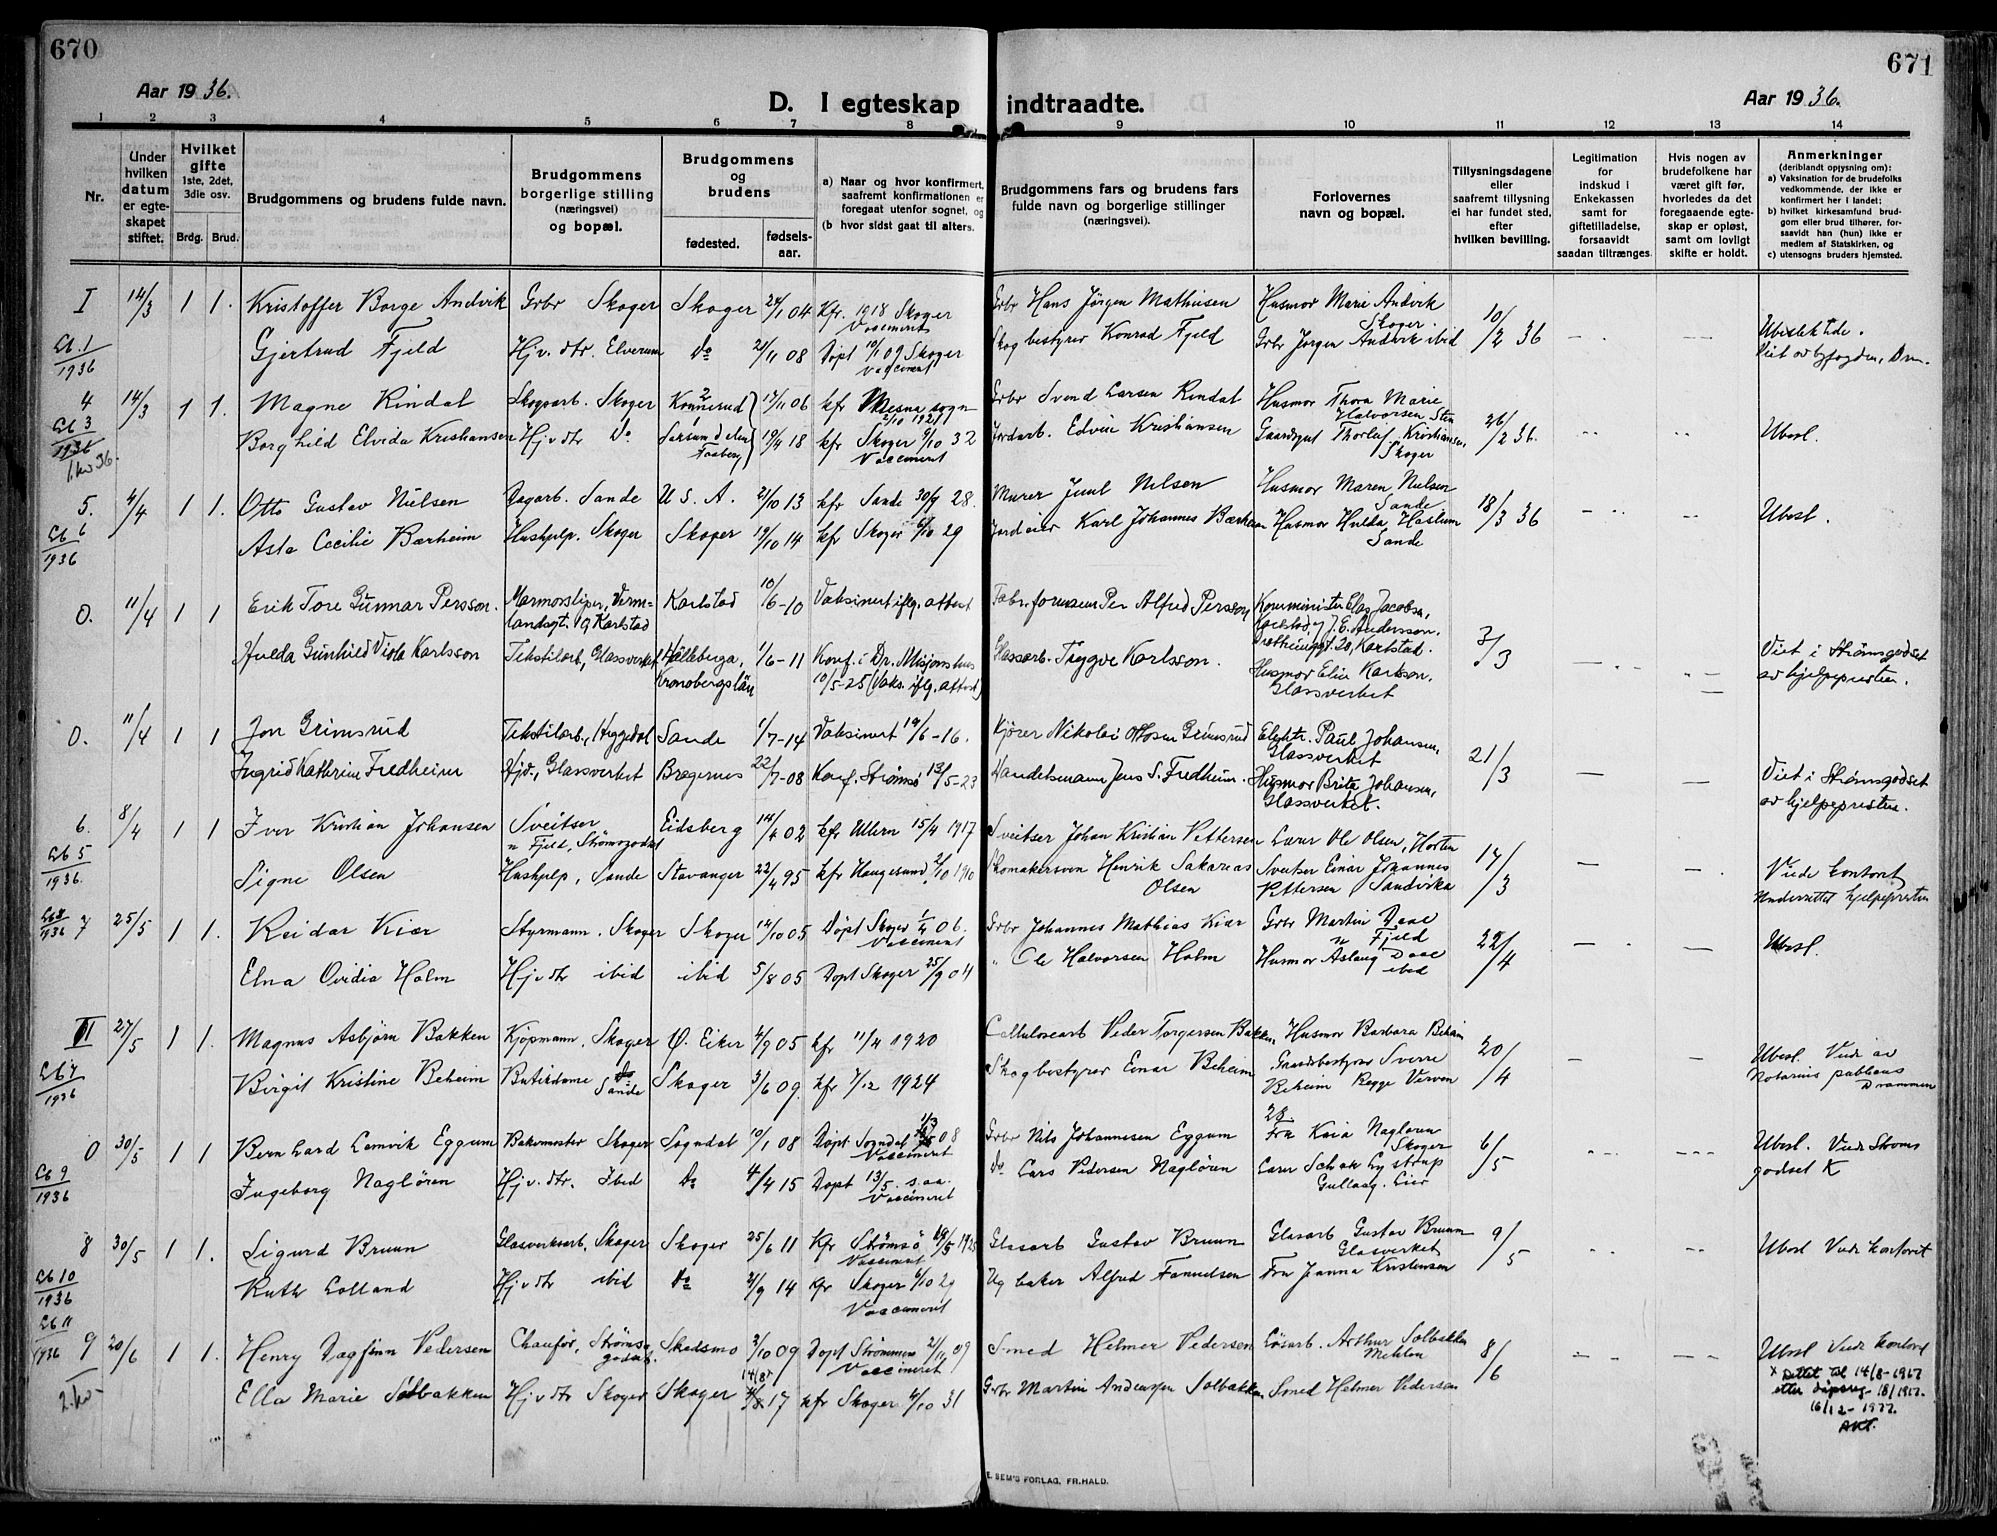 670
Aar 1936.
D. I egteskap
indtraadte.
Aar 1936.
671
1 2 3 4 5 6 7 8 9 10 11 12 13 14
Nr.
Under hvilken datum er egteskapet stiftet.
Hvilket gifte
1ste, 2det, 3die osv.
Brdg. Brud.
Brudgommens og brudens fulde navn.
Brudgommens borgerlige stilling (næringsvei) og bopæl.
Brudgommens og brudens
fødested.
fødselsaar.
a) Naar og hvor konfirmert, saafremt konfirmationen er foregaat utenfor sognet, og
(b hvor sidst gaat til alters.
Brudgommens fars og brudens fars fulde navn og borgerlige stillinger (næringsvei).
Forlovernes navn og bopæl.
Tillysningsdagene eller saafremt tillysning ei har fundet sted, efter hvilken bevilling.
Legitimation for indskud i Enkekassen samt for giftetilladelse, forsaavidt saadan tiltrænges.
Hvis nogen av brudefolkene har været gift før, hvorledes da det foregaaende egteskap er opløst, samt om lovligt skifte er holdt.
Anmerkninger
(deriblandt opjysning om):
a) Vaksination for de brudefolks vedkommende, der ikke er konfirmert her i landet;
b) hvilket kirkesamfund brudgom eller brud tilhører, forsaavidt han (hun) ikke er medlem af Statskirken, og
c) utensogns bruders hjemsted.
I 14/3 1 1. Kristoffer Borge Andvik Grbr Skoger Skoger 24/1 04 Kfr. 1918 Skoger Vaccineret Grbr Hans Jörgen Mathisen Husmor Marie Andvik Skoger. 10/2 36
Lb. 1/1936 Gjertrud Fjeld Hjv. dtr. Elverum do 21/11 08 Döpt 10/1 09 Skoger Vaccineret Skogbestyrer Konrad Fjeld Grbr Jörgen Andvik ibid Viet av byfogden, Drm.
4 14/3 1 1. Magne Rindal Skogsarb. Skoger Konnerud 17/11 06 kfr Mesna sogn 2/10 1921 Grbr Svend Larsen Rindal Husmor Thora Marie Halvorsen Sten 26/2 36.
Lb 3/1936 Borghild Elvida Kristiansen Hjv dtr do 19/4 18 kfr Skoger 9/10 32 Vaccineret Jordarb. Edvin Kristiansen Gaardsgut Thorleif Kristiansen, Skoger Ubesl.
1. kv 36.
5. 4/4 1 1. Otto Gustav Nilsen Dagarb. Sande U. S. A. 21/10 13 kfr Sande 30/9 28. Murer Juul Nilsen Husmor Maren Nielsen Sande 18/3 36 Ubesl.
Lb 6/1936 Asta Cecilie Bærheim Hushjelp. Skoger Skoger 19/10 14 kfr Skoger 6/10 29 Jordeier Karl Johannes Bærheim Husmor Hulda Haslum Sande
0. 11/4 1 1 Erik Tore Gunnar Persson. Marmorsliper, Vermlandsgt. 19 Karlstad Karlstad 10/6-10 Vaksinert iflg. attest Fabr. formann Per Alfred Persson Komminister Elas Jacobson, Karlstad, og J. E. Andersson. 20, Karlstad. 3/3
Hulda Gunhild Viola Karlsson Tekstilarb, Glassverket Hälleberga, Kronobergslän 1/6-11 Konf. i Dr. Misjonshus 10/5-25 (Vaks. iflg. attest) Glassarb. Tryggve Karlsson. Husmor Elin Karlsson. Glassverket Viet i Strömsgodset av hjelpepresten.
0. 11/4 1 1 Jon Grimsrud Tekstilarb., Heggedal Sande 1/7-14 Vaksinert 19/6-16. Kjörer Nikolai Ottosen Grimsrud Elektr. Paul Johansen, Glassverket 21/3
Ingrid Kathrine Fredheim Hjd., Glassverket Bragernes 22/7-08 Konf. Strømsø 13/5-23 Handelsmann Jens S. Fredheim. Husmor Brita Johansen, Glassverket. Viet i Strömsgodset av hjelpepresten.
6. 8/4 1 1 Iver Kristian Johansen Sveitser n Fjeld, Strömsgodset Eidsberg 14/4 02 kfr Ullern 15/4 1917 Sveitser Johan Kristian Pettersen Lærer Ole Olsen, Horten 17/3
Lb 5/1936. Signe Olsen Hushjelp, Sande Stavanger 22/4 95 kfr Haugesund 2/10 1910 Skomakersvenn Henrik Sakarias Olsen Sveitser Einar Johannes Pettersen Sandvika Vidr kontoret Underrettet hjelpepresten
Lb 8/1936 7 25/5 1 1. Reidar Kiær Styrmann. Skoger Skoger 14/10 05 Döpt Skoger 1/4 06. Vaccineret Grbr Johannes Mathias Kiær Grbr Martin Daae n Fjeld 22/4 Ubesl.
Elna Ovidia Holm Hjv dtr ibid ibid 5/8 05 Döpt Skoger 25/9 04 " Ole Halvorsen Holm Husmor Aslaug Daae ibid
II 27/5 1 1. Magnus Asbjörn Bakken Kjöpmann, Skoger Ø. Eiker 4/9 05 kfr 11/4 1920 Celluloseart Peder Torgersen Bakken Husmor Barbara Beheim 20/4 Ubesl. Vidr av Notarius publicus Drammen
Lb 7/1936 Birgit Kristine Beheim Butikdame Sande Skoger 3/6 09. kfr 7/12 1924 Skogbestyrer Einar Beheim Gaardsbestyrer Sverre Beheim Rygge Verven
0 30/5 1 1 Bernhard Lemvik Eggum Bakermester Skoger Sogndal 10/1 08 Döpt Sogndal 08 Vaccineret Grbr Nils Johannesen Eggum Fru Kaia Naglören Skoger 6/5 Ubesl. Vidr Strömsgodset K
Lb 9/1936 Ingeborg Naglören Hjv. dtr. Ibid do 4/4 15 Döpt 13/5 s.aa. Vaccineret do Lars Pedersen Naglören Lærer Schak Lystrup Gullaug. Lier
8 30/5 1 1. Sigurd Bruun Glasverksarb, Skoger Skoger 25/6 11 Kfr Strømsö 1925 Vaccineret Glasarb Gustav Bruun Glasarb Gustav Bruun Glasverket 9/5 Ubesl Vidr kontoret
Lb 10/1936 Ruth Lolland Hjv dtr ibid do 21/9 14 Kfr Skoger 6/10 29 Vaccineret Ug baker Alfred Fanuelsen Fru Janna Kristensen
Lb 11/1936 9 20/6 1 1. Henry Dagfinn Pedersen Chaufør, Strömsgodset. Skedsmo 3/10 09 Döpt Strömmen 21/11 09 Vaccineret Smed Helmer Pedersen Arthur Solbakken 8/6 Ubesl Vidr kontoret
2. kv- Ella Marie Solbakken Hjv dtr Skoger Skoger 14/8 17 kfr Skoger 4/10 31 Grbr Martin Anderssen Solbakken Smed Helmer Pedersen
x Rettet til 14/8-1917 etter dåpsreg- 18/1917. 16/12-1977.
E. SEM'S FORLAG, FR.HALD.